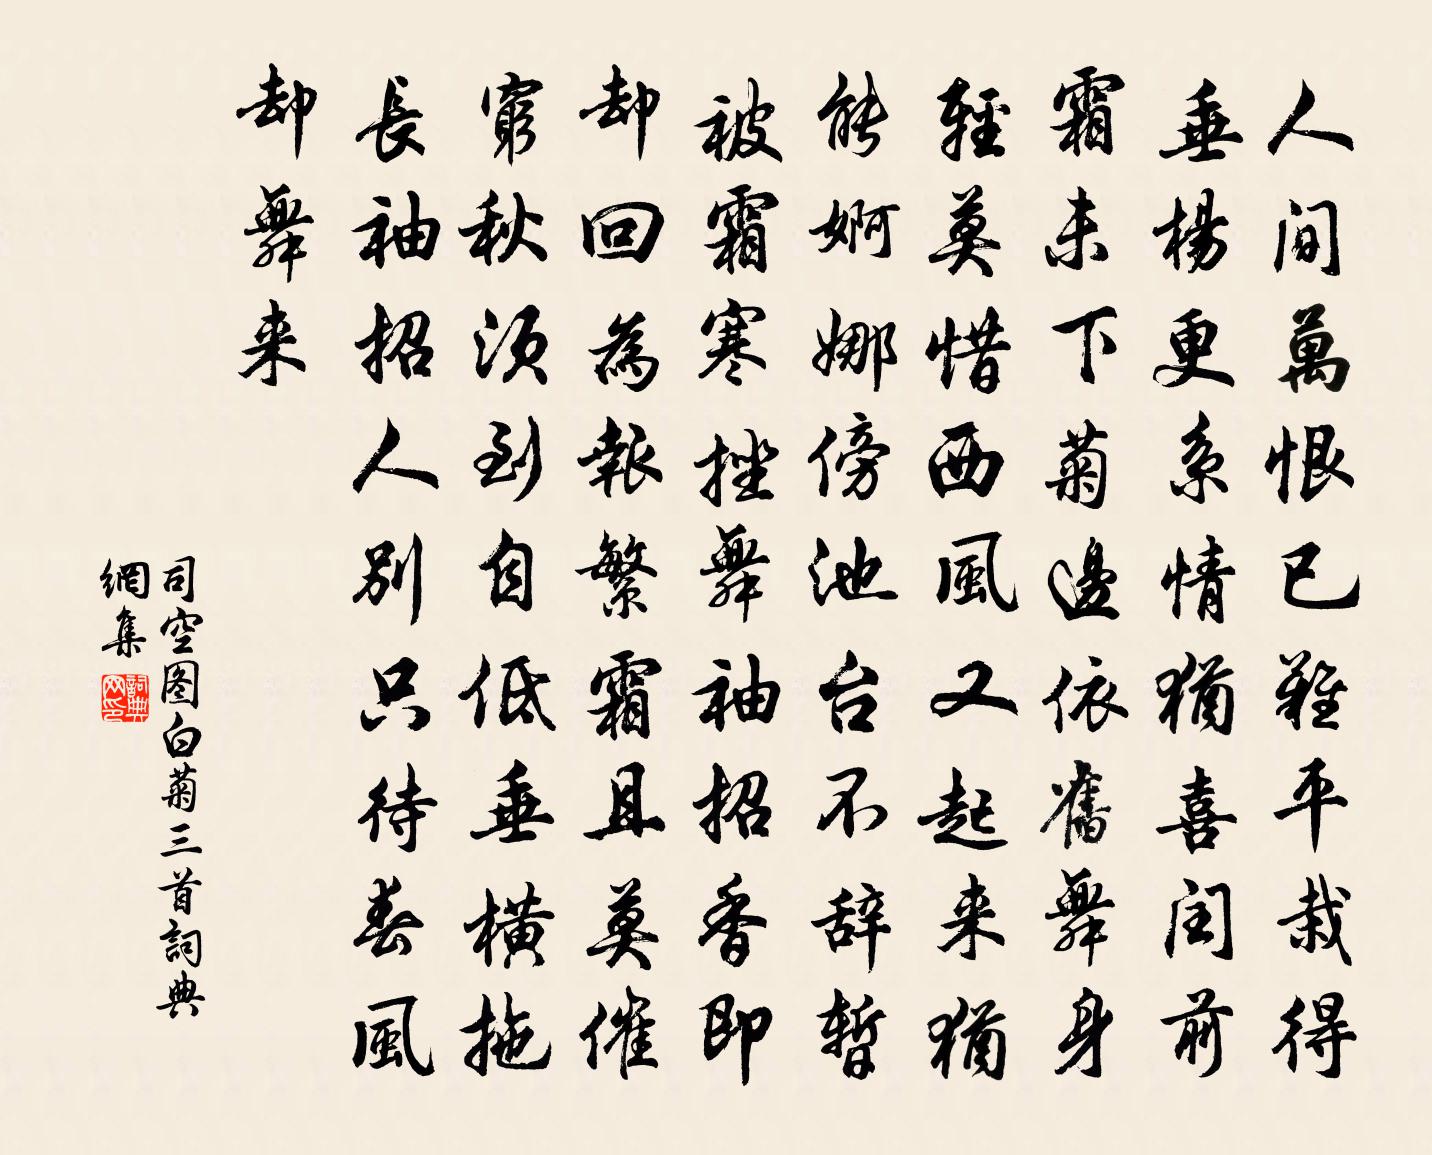 人間萬恨已難平栽得
垂楊更系情猶喜閏前
霜未下菊邊依舊舞身
輕莫惜西風又起来猶
能婀娜傍池台不辞暫
被霜寒挫舞袖招香即
却回為報繁霜且莫催
窮秋須到自低垂橫拖
長袖招人別只待春風
却舞来
司空图白菊三首詞典
網集
詞典
网印